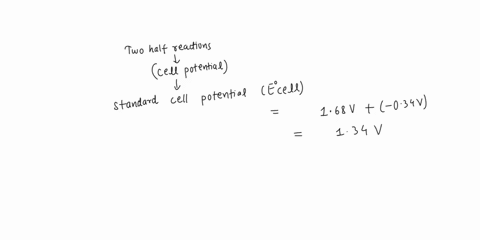 Two half reactions
↓
(cell potential)
↓
standard cell potential (E°cell)
= 1.68 V + (-0.34V)
= 1.34 V